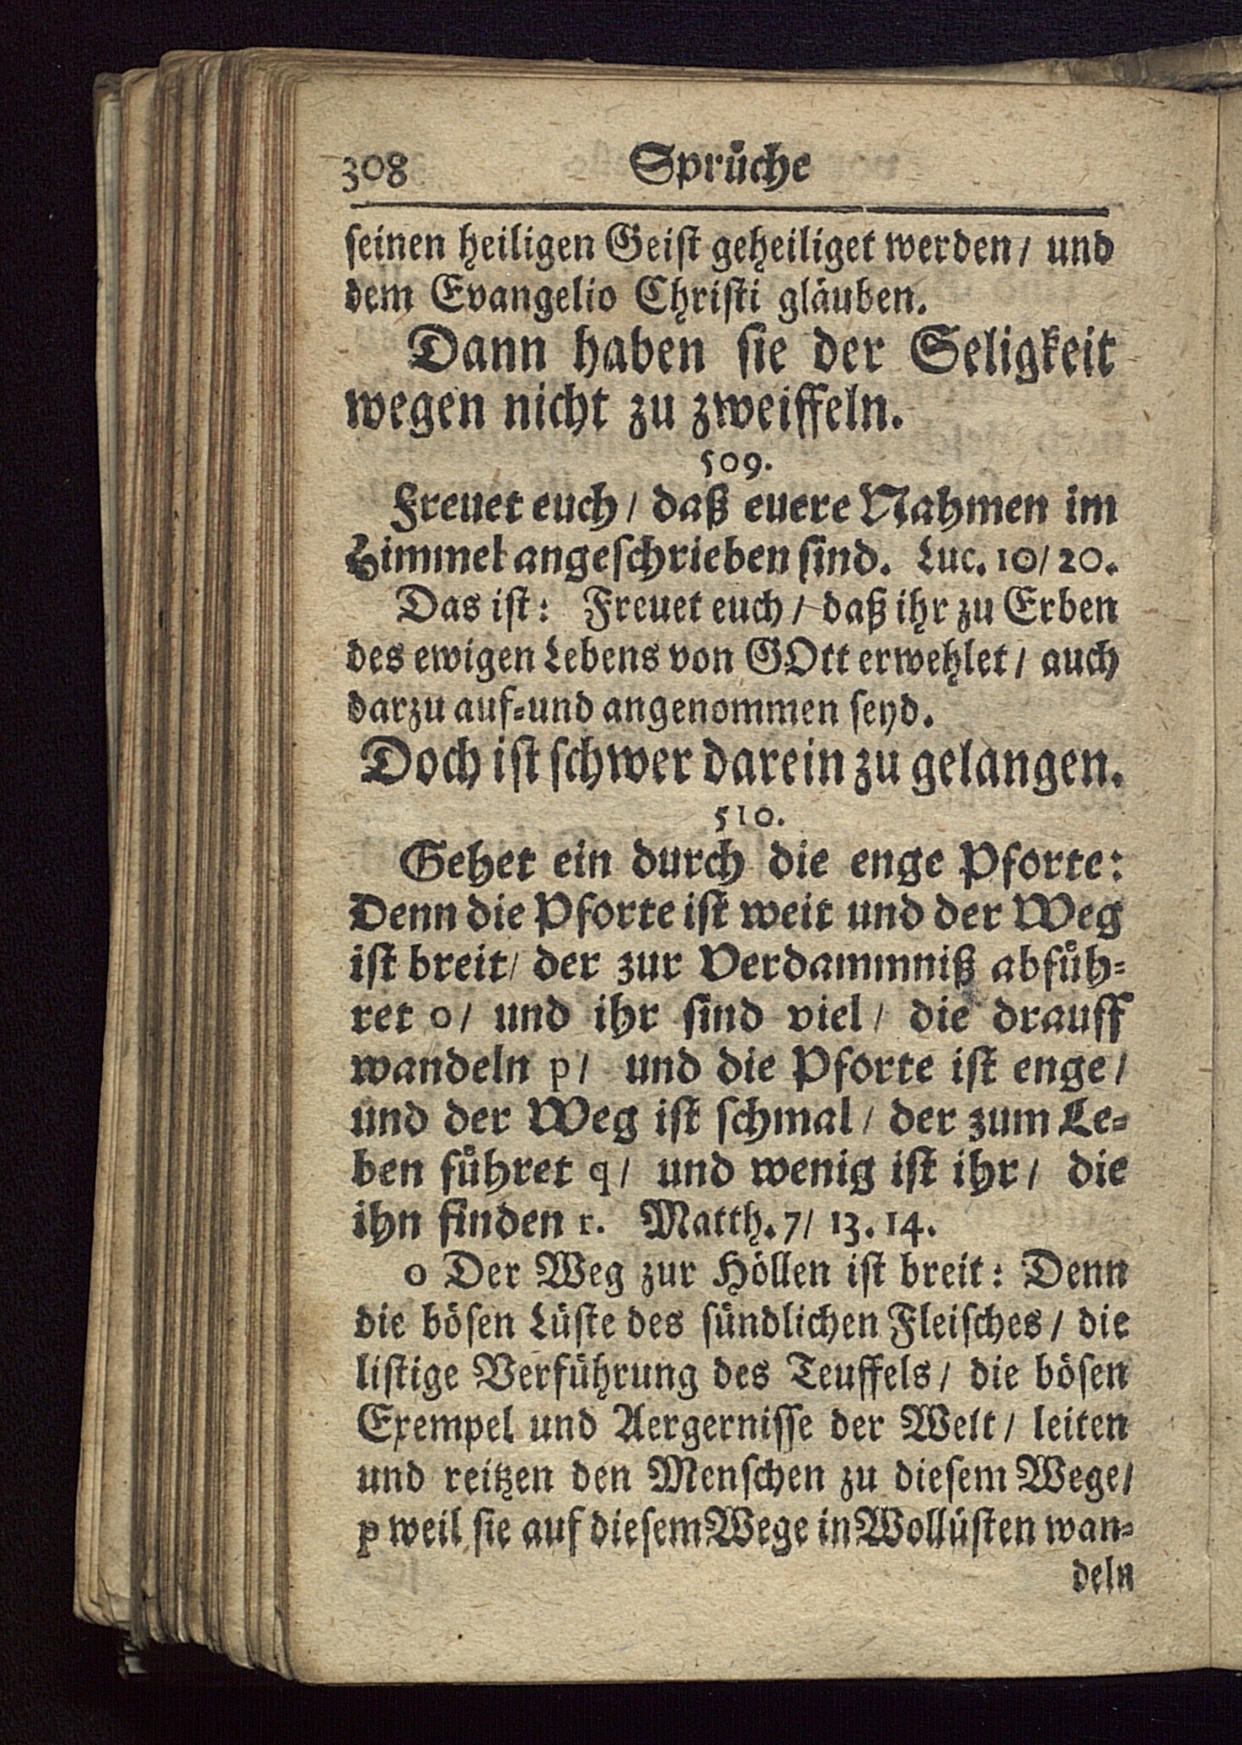 308 Sprüche
seinen heiligen Geist geheiliget werden / und
dem Evangelio Christi gläuben.
Dann haben sie der Seligkeit
wegen nicht zu zweiffeln.
509.
Freuet euch / daß euere Nahmen im
Himmel angeschrieben sind. Luc. 10/20.
Das ist: Freuet euch / daß ihr zu Erben
des ewigen Lebens von GOtt erwehlet / auch
darzu auf-und angenommen seyd.
Doch ist schwer darein zu gelangen.
510.
Gehet ein durch die enge Pforte:
Denn die Pforte ist weit und der Weg
ist breit / der zur Verdammniß abfüh-
ret o / und ihr sind viel / die drauff
wandeln p / und die Pforte ist enge /
und der Weg ist schmal / der zum Le-
ben führet q / und wenig ist ihr / die
ihn finden r. Matth. 7/ 13. 14.
o Der Weg zur Höllen ist breit: Denn
die bösen Lüste des sündlichen Fleisches / die
listige Verführung des Teuffels / die bösen
Exempel und Aergernisse der Welt / leiten
und reitzen den Menschen zu diesem Wege /
p weil sie auf diesem Wege in Wollüsten wan-
deln